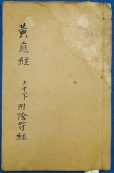 黄庭經
上中下附陰符經